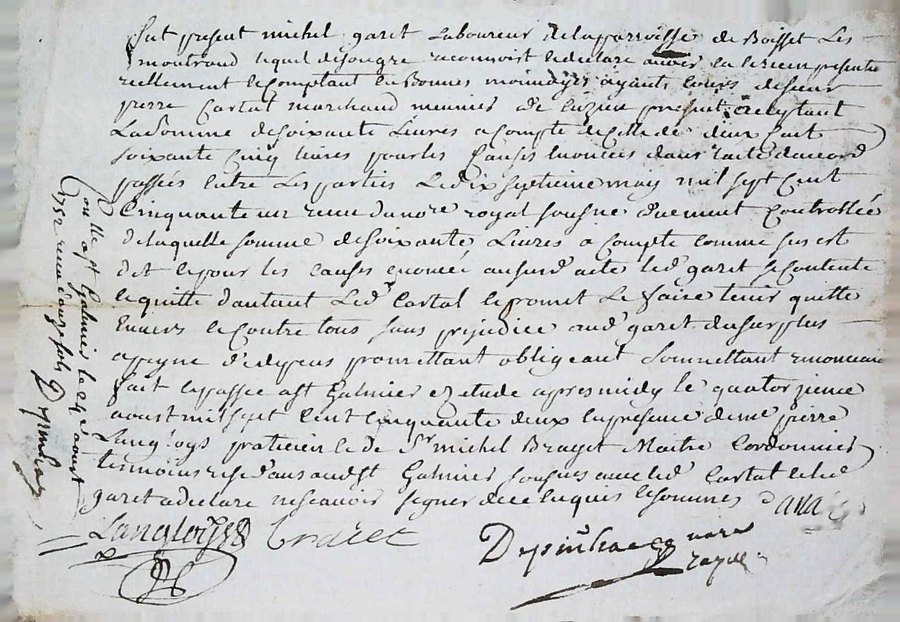 fut present michel garet Laboureur de la parroisse de Boisset Les
montrond lequel de son gre reconnoit et declare avoir eu et receu presente
reellement et Comptant en Bonnes monnoyes ayants cours de sieur
pierre Cartal marchand meunier de present et acceptant
La Somme de soixante Livres a compte de Celle de deux Cent
soixante Cinq livres pour les Causes enoncées dans l'acte d'accord
passées entre Les parties Le dix septieme may mil sept Cent
Cinquante un receu du nore royal soussne duement Controllée
de laquelle somme de soixante Livres a Compte comme sus est
dit et pour les causes enoncée au susd acte led garet se contente
et quitte d'autant Led Cartal et promet Le faire tenir quitte
Envers et Contre tous sans prejudice aud garet du surplus
a peyne d'depens promettant obligeant Soumettant renonceant
fait et passé a St Galmier et etude apres midy le quatorzieme
aoust mil sept Cent cinquante deux en presence de me pierre
Langloys praticien et de Sr michel Brayet Maitre Cordonnier
temoins resid ans aud St Galmier soussés avec led Cartal et led
garet a declaré ne scavoir signer de ce enquis et somme
Langloys
Depinhac nore
royal
Con a St Galmier le 24 aoust
1752 receu douze sols Depinhac